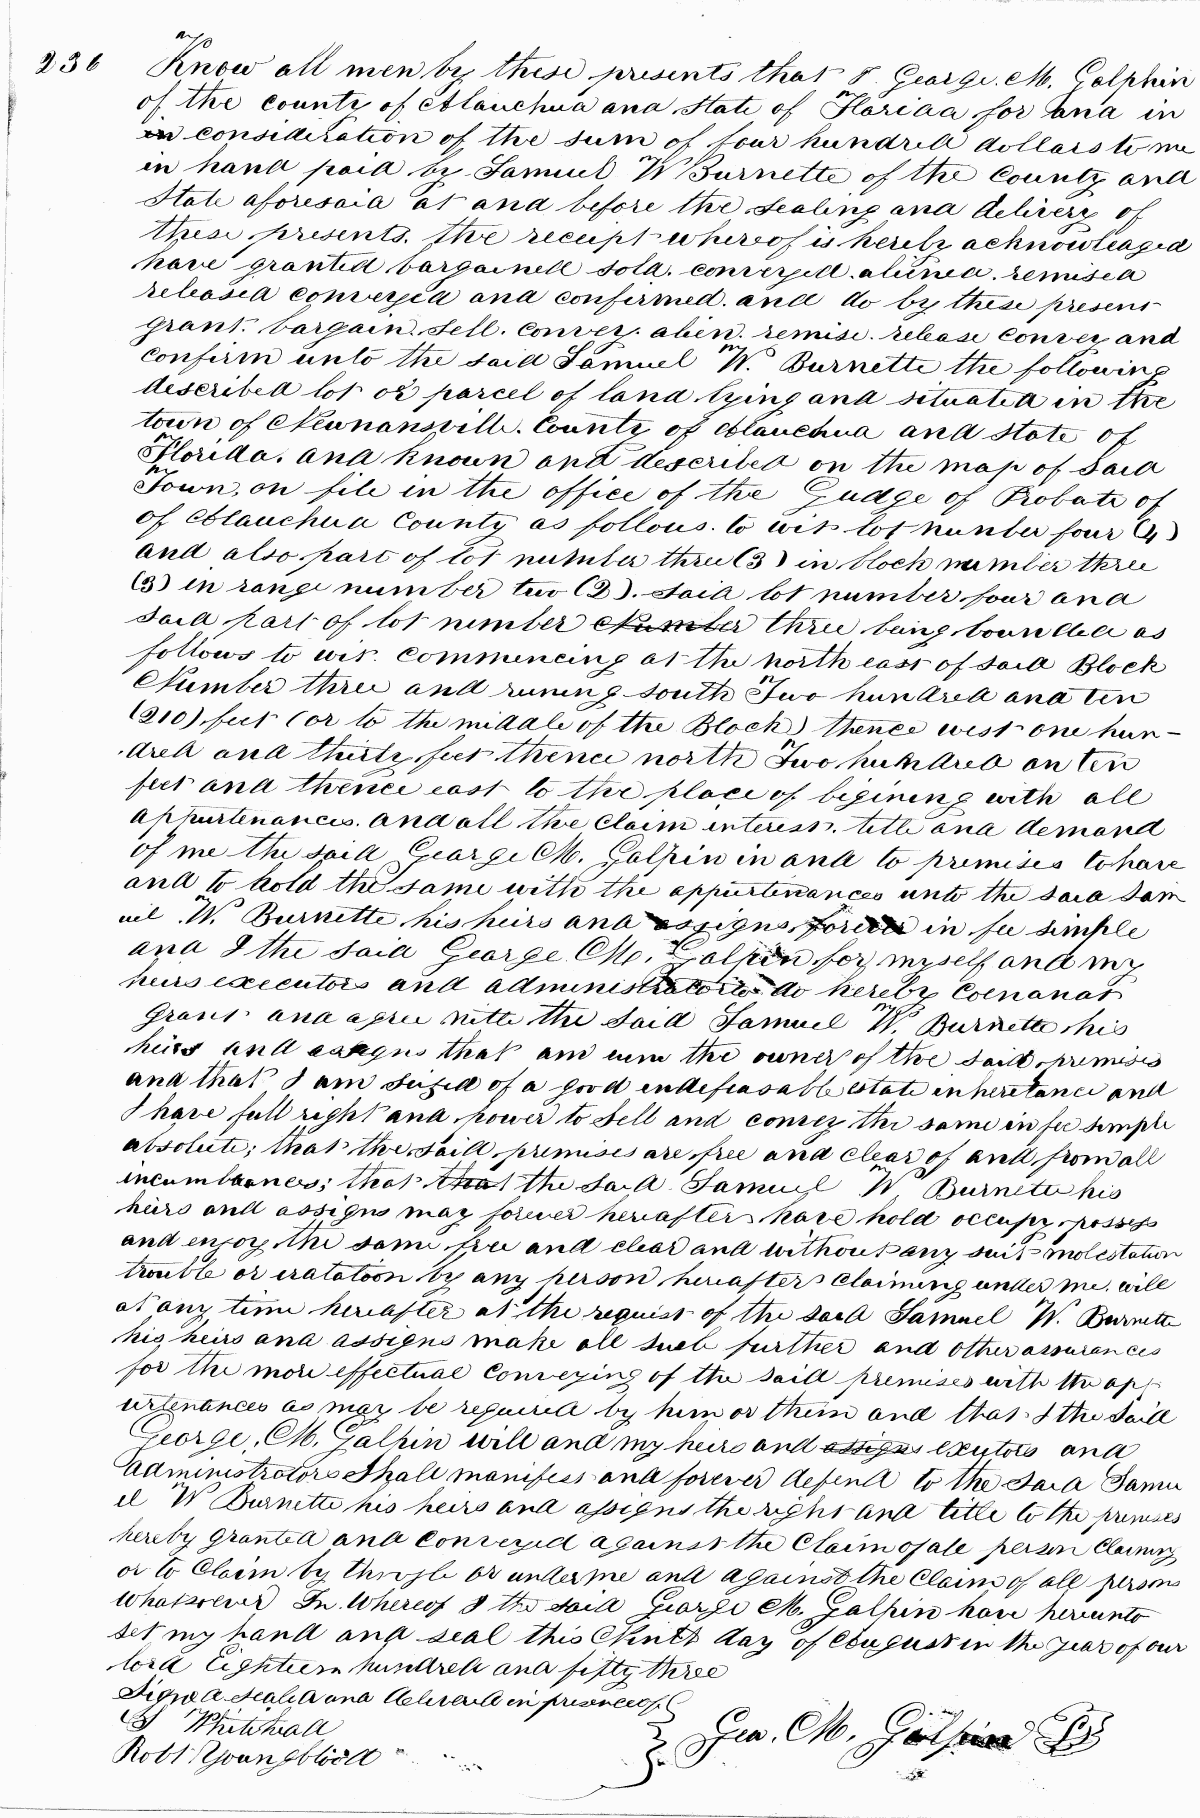 236 Know all men by these presents that I George. M. Galphin
of the county of Alauchua and State of Florida for and in
in consideration of the sum of four hundred dollars to me
in hand paid by Samuel W Burnette of the County and
State aforesaid at and before the sealing and delivery of
these presents. the receipt whereof is hereby acknowledged
have granted bargained sold. conveyed. aliened. remised
released conveyed and confirmed. and do by these present
grant. bargain. sell. convey. alien. remise. release convey and
confirm unto the said Samuel W. Burnette the following
described lot or parcel of land lying and situated in the
town of Newnansville. County of Alauchua and State of
Florida. and known and described on the map of said
Town. on file in the office of the Judge of Probate of
of Alauchua County as follows. to wit lot number four (4)
and also part of lot number three (3) in block number three
(3) in range number two (2). said lot number four and
said part of lot number Number three being bounded as
follows to wit. commencing at the north east of said Block
Number three and runing south Two hundred and ten
(210) feet (or to the middle of the Block) thence west one hun-
dred and thirty feet thence north Two hundred an ten
feet and thence east to the place of bigining with all
appurtenances. and all the claim interest. title and demand
of me the said George M. Galpin in and to premises to have
and to hold the same with the appurtenances unto the said Sam
uel W. Burnette his heirs and assigns forever in fee simple
and I the said George M. Galpin for myself and my
heirs executors and administrators do hereby coenanat
grant and agree with the said Samuel W. Burnette his
heirs and assigns that am um the owner of the said premises
and that I am seized of a good endefeasable estate inheretance and
I have full right and power to sell and convey the same in fee simple
absolute; that the said premises are free and clear of and from all
incumbrances; that that the said Samuel W. Burnette his
heirs and assigns may forever hereafter have hold occupy possess
and enjoy the same free and clear and without any suit molestation
trouble or by any person hereafter claiming under me. will
at any time hereafter at the request of the said Samuel W. Burnette
his heirs and assigns make all such further and other assurances
for the more effectual conveying of the said premises with the app
urtenances as may be required by him or them and that I the said
George. M. Galpin will and my heirs and assigns exutors and
administrators shall manifest and forever defend to the said Samu
el W Burnette his heirs and assigns the right and title to the premises
hereby granted and conveyed against the claim of all person claiming
or to claim by through or under me and against the claim of all persons
whatsoever In Whereof I the said George M. Galpin have hereunto
set my hand and seal this Ninth day of August in the year of our
lord Eighteen hundred and fifty three
Signed sealed and delivered in presence of
Whitehead
Robt. Youngblood
Geo. M. Galpin